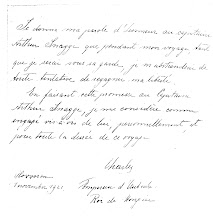 Je donne ma parole d'honneur au Capitaine
Arthur Snagge que pendant mon voyage, tant
que je serai sous sa garde, je m'abstiendrai de
toute tentative de regagner ma liberté.
En faisant cette promesse au Capitaine
Arthur Snagge, je me considère comme
engagé vis-à-vis de lui personnellement et
pour toute la durée de ce voyage.
Charles
novembre 1921
Empereur d'Autriche
Roi de Hongrie